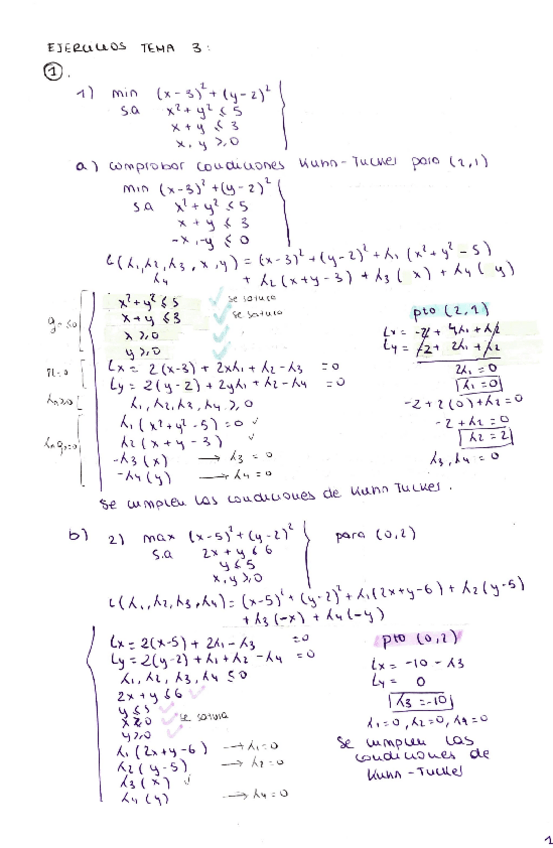 EJERCICIOS TEMA 3:
①.
1) min (x-3)² + (y-2)²
s.a x² + y² ≤ 5
x + y ≤ 3
x, y ≥ 0
a) Comprobar condiciones Kuhn-Tucker para (2,1)
min (x-3)² + (y-2)²
s.a x² + y² ≤ 5
x + y ≤ 3
-x, -y ≤ 0
L(λ1, λ2, λ3, x, y) = (x-3)² + (y-2)² + λ1 (x² + y² - 5)
λ4 + λ2 (x+y-3) + λ3 ( x) + λ4 ( y)
x² + y² ≤ 5 ✓ se satura
x + y ≤ 3 ✓ se satura
x ≥ 0 ✓
y ≥ 0 ✓
Lx = 2(x-3) + 2xλ1 + λ2 - λ3 = 0
Ly = 2(y-2) + 2yλ1 + λ2 - λ4 = 0
λ1, λ2, λ3, λ4 ≥ 0
λ1 (x² + y² - 5) = 0 ✓
λ2 (x + y - 3) ✓
-λ3 (x) → λ3 = 0
-λ4 (y) → λ4 = 0
pto (2,1)
Lx = -2 + 4λ1 + λ2
Ly = -2 + 2λ1 + λ2
2λ1 = 0
λ1 = 0
-2 + 2(0) + λ2 = 0
-2 + λ2 = 0
λ2 = 2
λ3, λ4 = 0
Se cumplen las condiciones de Kuhn Tucker.
b) 2) max (x-5)² + (y-2)² para (0,2)
s.a 2x + y ≤ 6
y ≤ 5
x, y ≥ 0
L(λ1, λ2, λ3, λ4) = (x-5)² + (y-2)² + λ1 (2x+y-6) + λ2 (y-5)
+ λ3 (-x) + λ4 (-y)
Lx = 2(x-5) + 2λ1 - λ3 = 0
Ly = 2(y-2) + λ1 + λ2 - λ4 = 0
λ1, λ2, λ3, λ4 ≤ 0
2x + y ≤ 6 ✓
y ≤ 5 ✓
x ≥ 0 ✓ se satura
y ≥ 0 ✓
λ1 (2x+y-6) → λ1 = 0
λ2 (y-5) → λ2 = 0
λ3 (x) ✓
λ4 (y) → λ4 = 0
pto (0,2)
Lx = -10 - λ3
Ly = 0
λ3 = -10
λ1 = 0, λ2 = 0, λ4 = 0
Se cumplen las
condiciones de
Kuhn-Tucker
1